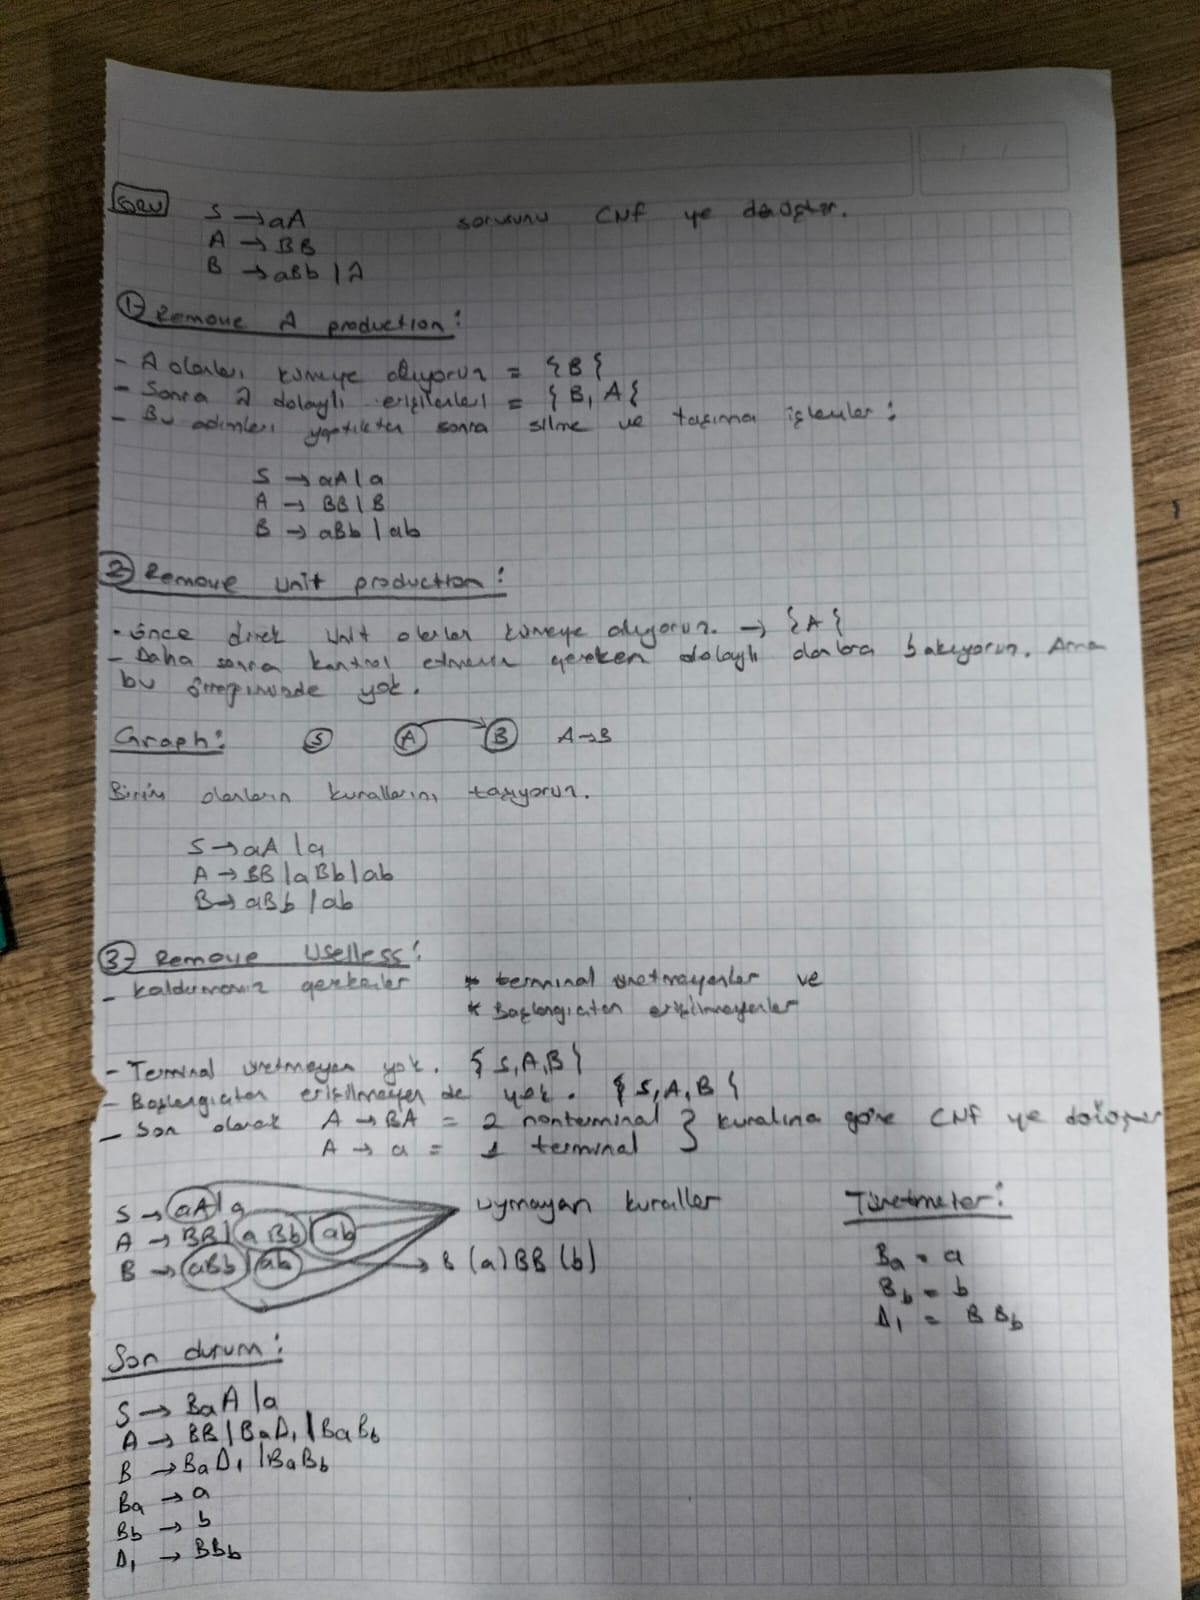 SORU S → aA sorusunu CNF ye dönüştür.
A → BB
B → aBb | λ
1- Remove λ production:
- λ olanları kümeye alıyoruz = {B}
- Sonra λ dolaylı erişilenleri = {B, A}
- Bu adımları yaptıktan sonra silme ve taşıma işlemler:
S → aA | a
A → BB | B
B → aBb | ab
2- Remove unit production:
- önce direk unit olanları kümeye alıyoruz. → {A}
- Daha sonra kontrol etmemiz gereken dolaylı olanlara bakıyoruz. Ama
bu örneğimizde yok.
Graph: S A B A → B
Birim olanların kurallarını taşıyoruz.
S → aA | a
A → BB | aBb | ab
B → aBb | ab
3- Remove Uselless:
- kaldırmamız gerekenler * terminal üretmeyenler ve
* Başlangıçtan erişilmeyenler
- Terminal üretmeyen yok. {S, A, B}
- Başlangıçtan erişilmeyen de yok. {S, A, B}
- Son olarak A → BA = 2 nonterminal } kuralına göre CNF ye dönüşür
A → a = 1 terminal
S → aA | a uymayan kurallar Türetmeler:
A → BB | aBb | ab
B → aBb | ab → B (a) BB (b)
Ba = a
Bb = b
D₁ = B Bb
Son durum:
S → BaA | a
A → BB | BaD₁ | BaBb
B → BaD₁ | BaBb
Ba → a
Bb → b
D₁ → BBb